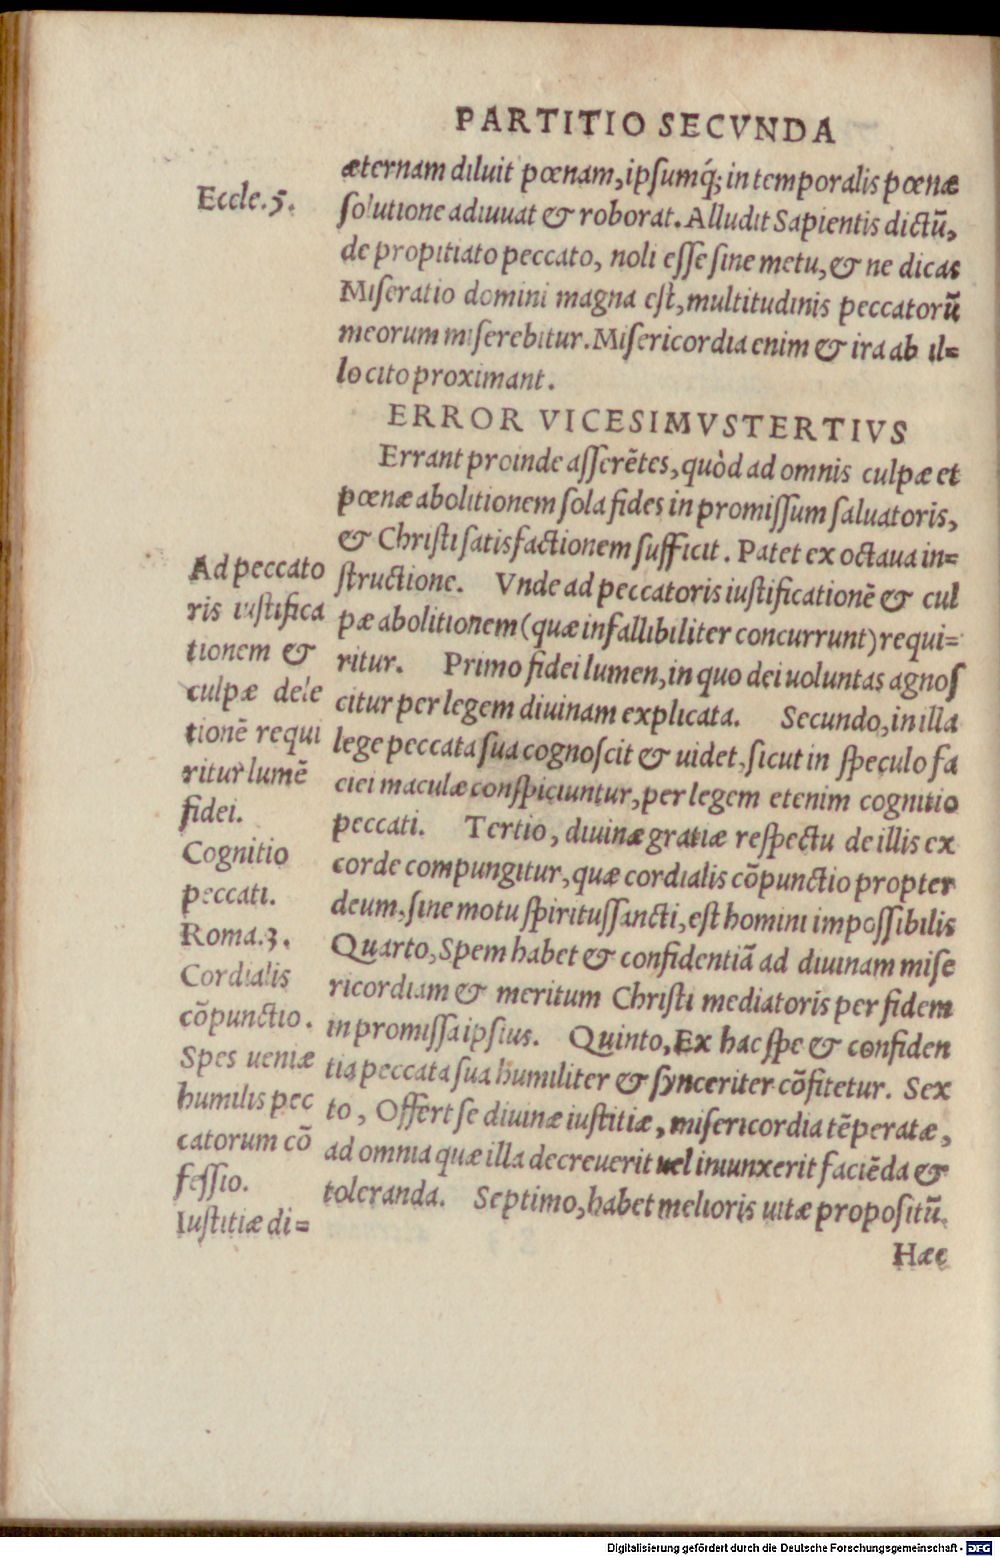 PARTITIO SECVNDA
æternam diluit pœnam, ipsumq́; in temporalis pœnæ
solutione adiuuat & roborat. Alludit Sapientis dictū,
de propitiato peccato, noli esse sine metu, & ne dicas
Miseratio domini magna est, multitudinis peccatorū
meorum miserebitur. Misericordia enim & ira ab il=
lo cito proximant.
Eccle.5.
ERROR VICESIMVSTERTIVS
Errant proinde asserētes, quòd ad omnis culpæ et
pœnæ abolitionem sola fides in promissum saluatoris,
& Christi satisfactionem sufficit. Patet ex octaua in=
structione. Vnde ad peccatoris iustificationē & cul
pæ abolitionem (quæ infallibiliter concurrunt) requi=
ritur. Primo fidei lumen, in quo dei uoluntas agnos
citur per legem diuinam explicata. Secundo, in illa
lege peccata sua cognoscit & uidet, sicut in speculo fa
ciei maculæ conspiciuntur, per legem etenim cognitio
peccati. Tertio, diuinæ gratiæ respectu de illis ex
corde compungitur, quæ cordialis cōpunctio propter
deum, sine motu spiritussancti, est homini impossibilis
Quarto, Spem habet & confidentiā ad diuinam mise
ricordiam & meritum Christi mediatoris per fidem
in promissa ipsius. Quinto, Ex hac spe & confiden
tia peccata sua humiliter & synceriter cōfitetur. Sex
to, Offert se diuinæ iustitiæ, misericordia tēperatæ,
ad omnia quæ illa decreuerit uel iniunxerit faciēda &
toleranda. Septimo, habet melioris uitæ propositū.
Hæc
Ad peccato
ris iustifica
tionem &
culpæ dele
tionē requi
ritur lumē
fidei.
Cognitio
peccati.
Roma.3.
Cordialis
cōpunctio.
Spes ueniæ
humilis pec
catorum cō
fessio.
Iustitiæ di=
Digitalisierung gefördert durch die Deutsche Forschungsgemeinschaft - DFG